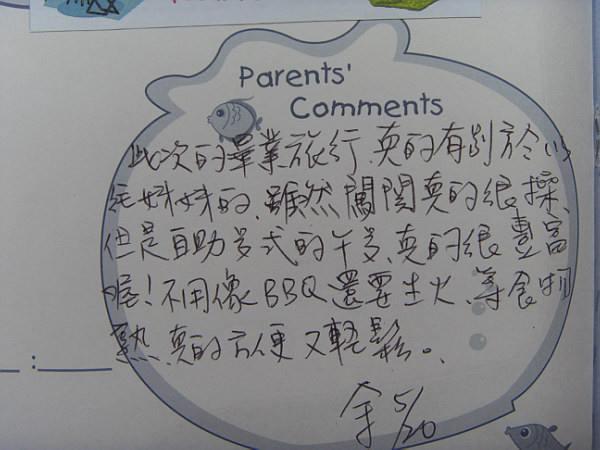 Parents'
Comments
此次的畢業旅行、真的有別於以
往姊妹的、雖然闖關真的很操、
但是自助多式的午多、真的很豐富
喔!不用像BBQ還要生火、等食物
熟、真的方便又輕鬆。
余 5/20
: